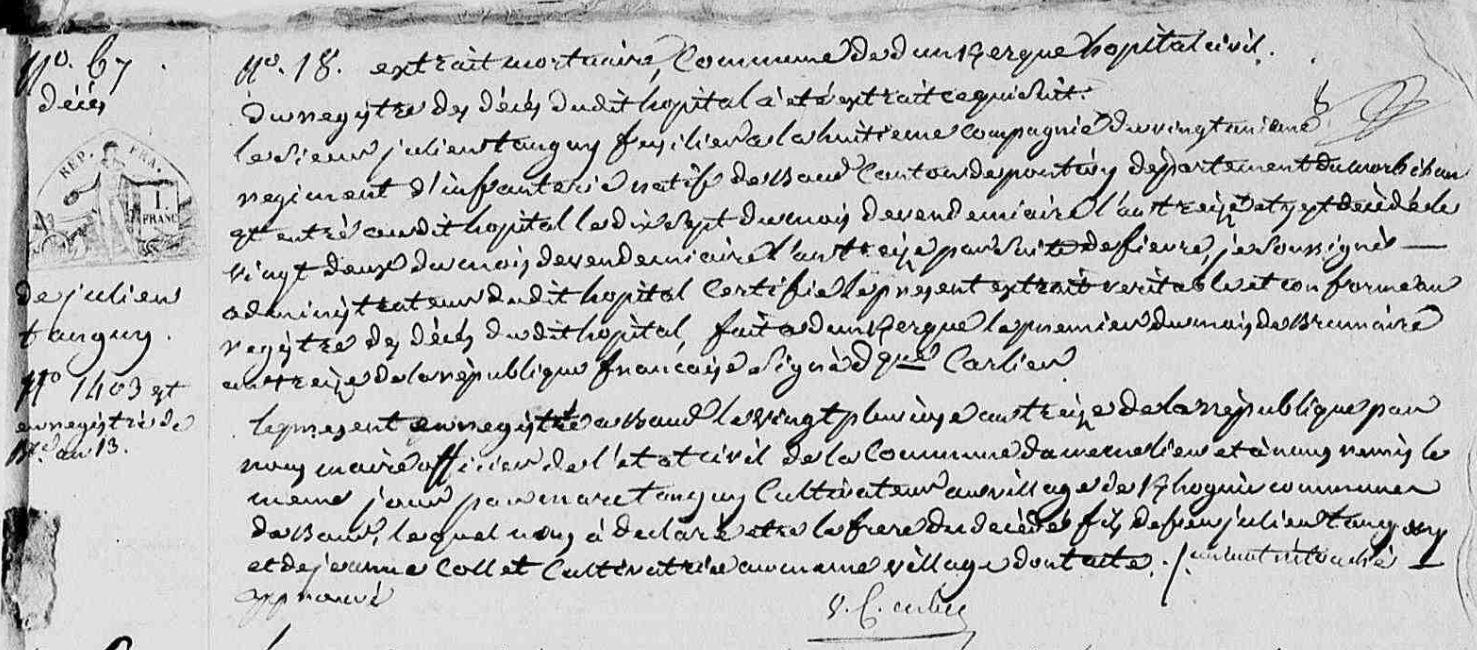 No. 67
décés
RÉP. FRA.
1.
FRANC
de julien
tanguy.
No 1403 est
enregistré de
Bre. an 13.
No. 18. extrait mortuaire, Commune de dunkerque hopital civil.
Du registre des décés dudit hopital à été extrait ce qui suit.
le sieur julien tanguy fusilier a la huitieme compagnie du vingtunieme
regiment d'infanterie natif de Baud Canton de pontivy département du morbihan
est entré audit hopital le dix sept du mois de vendemiaire l'an treize et y est decédé le
vingt deux du mois de vendemiaire l'an treize par suite de fievre, je soussigné
administrateur dudit hopital Certifie le present extrait veritable et conforme au
registre des décés dudit hopital, fait a dunkerque le premier du mois de Brumaire
an treize de la république francaise signé dque Carlier
le present enregistré a Baud le vingt pluviose an treize de la république par
nous maire officier de l'état civil de la Commune du meme lieu et à nous remis le
meme jour par marc tanguy Cultivateur au village de commune
de Baud, lequel nous à declaré etre le frere du decédé fils de feu julien tanguy
et de jeanne Collet Cultivatrice au meme village dont acte.
approuvé